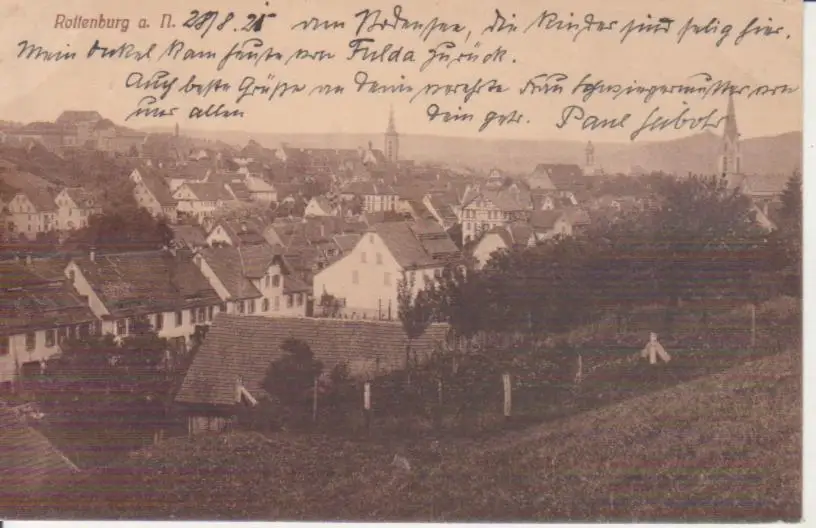 Rottenburg a. N. 28/8. 25 vom Bodensee, die Kinder sind selig hier.
Mein Onkel kam heute von Fulda zurück.
Auch beste Grüße an Deine verehrte Frau Schwiegermutter von
uns allen Dein getr. Paul